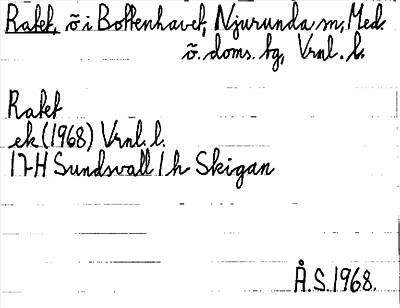 Rafet, ö i Bottenhavet, Njurunda sn, Med.
ö. doms. tg, Vrnl. l.
Rafet
ek (1968) Vrnl. l.
17H Sundsvall 1 h Skigan
Å.S. 1968.